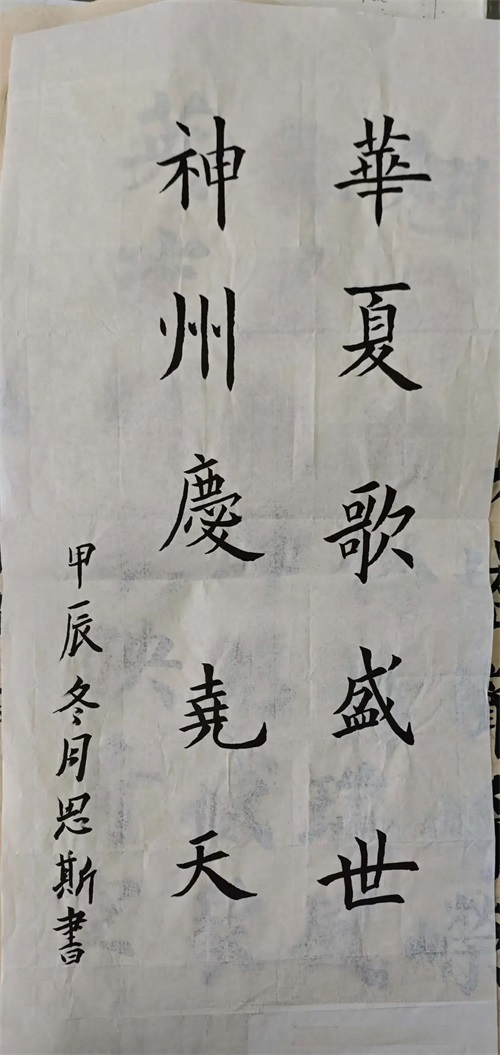 華夏歌盛世
神州慶堯天
甲辰冬月思斯書